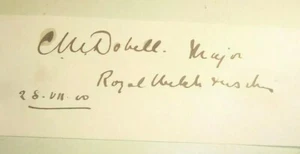 C M Dobell. Major
Royal Welch Fusiliers
28.VII.00